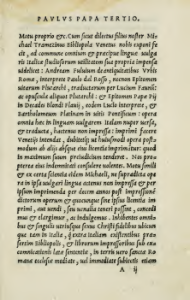 PAVLVS PAPA TERTIO.
Motu proprio &c. Cum sicut dilectus filius noster Mi
chael Tramezinus Bibliopola Venetus nobis exponi fe
cit, ad communem omnium & precipue lingue vulga
ris italice studiosorum utilitatem sua propria impensa
Andream Fulvium de antiquitatibus Vrbis
Rome, interprete Paulo del Rosso, necnon Epitomen
uitarum Plutarchi, traductarum per Lucium Fauni:
ac opuscula aliqua Plutarchi: & Epitomen Papae Pij
in Decades Blondi Flauij, eodem Lucio interprete, &
Bartholomeum Platinam in uitis Pontificum: opera
omnia hec in lingua uulgarem Italam nuper uersa,
& traducta, hactenus non impressa: imprimi facere
Venetijs intendat, dubitetq; ut huiusmodi opera post
modum ab alijs absque eius licentia imprimantur: quod
in maximum suum preiudicium tenderet. Nos pro
pterea eius indemnitati consulere uolentes. Motu simili
& ex certa scientia eidem Michaeli, ne supradicta ope
ra in ipsa uulgari lingua hactenus non impressa, & per
ipsum imprimenda per decem annos post impressio
dictorum operum a quocunque sine ipsius licentia
primi, aut uendi, seu uenalia teneri possint, conce
mus & elargimur, ac indulgemus. Inhibentes omni
bus & singulis utriusque sexus Christi fidelibus ubicun
que tam in Italia, q̃ extra Italiam existentibus pre
sertim Bibliopolis, & librorum impressoribus sub exco
municationis late sententie, in terris uero sancta Ro
mana ecclesie mediate, uel immediate subiectis etiam
A ij